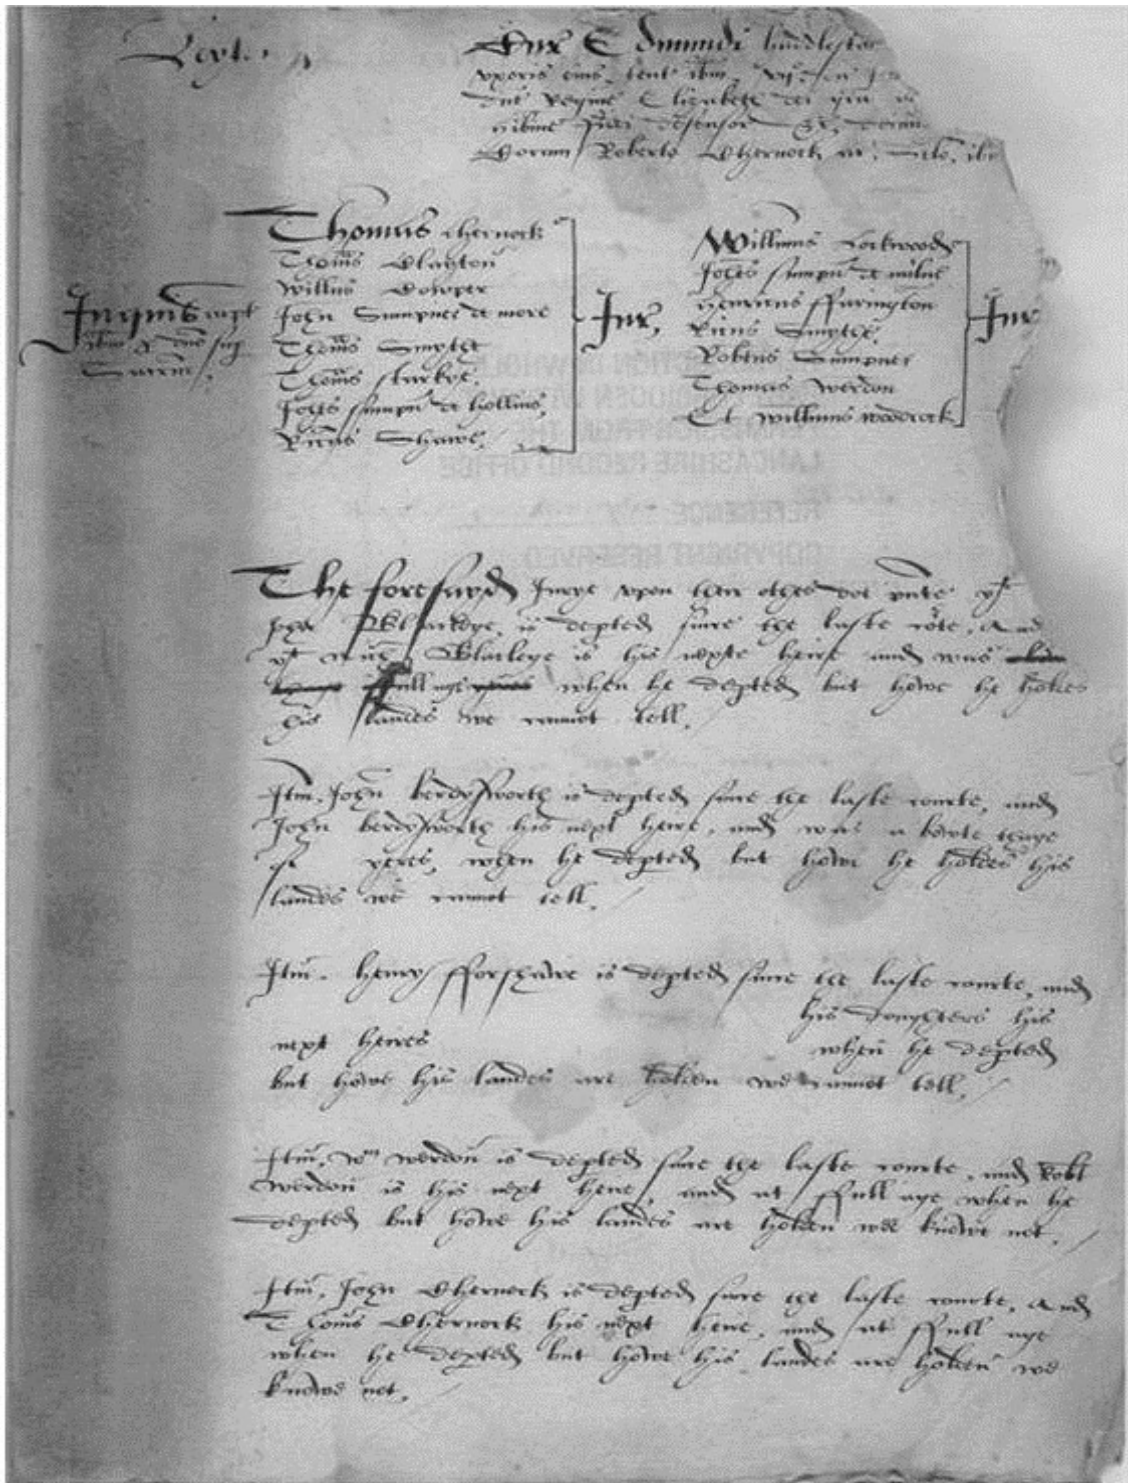 Leyl.
Cur Edmundi huddlesto
uxoris eius tent ibm
dne Regine Elizabethe dei gra
hibnie fidei defensor &c
Coram Roberto Chernock ar. ibi
Thomas chernock
Thoms Clayton
Willms Cowper
John Sumpner de more
Thoms Smythe
Thoms starkye.
Johes sumpn de hollins,
Ricus Shawe.
Jur,
Willimus Lockwoode
Johes sumpn de milne
Henricus ffarington
Ricus Smythe,
Robtus Sumpner
Thomas Werdon
Et Willimus woodcock
Jur
Inquis capt
ibm &
The foresayd Jurye upon their othes doe pnte yt
John Blackeleye is depted since the laste corte, And
yt Blackleye is his nexte heire and was
ffull age when he depted but howe he holdes
his landes we cannot tell.
Itm. John berdsworth is depted since the laste courte, and
John berdsworth his next heire, and was a bowte thage
of yeres, when he depted but howe he holdes his
landes we cannot tell.
Itm. henry fforshawe is depted since the laste courte, and
his doughters his
next heires when he depted
but howe his landes are holden we cannot tell.
Itm. Wm werdon is depted since the laste courte, and Robt
werdon is his next heire, and at ffull age when he
depted but howe his landes are holden wee knowe not.
Itm. John Chernock is depted since the laste courte, And
Thoms Chernock his next heire, and at ffull age
when he depted but howe his landes are holden we
knowe not.
LANCASHIRE RECORD OFFICE
REFERENCE
COPYRIGHT RESERVED